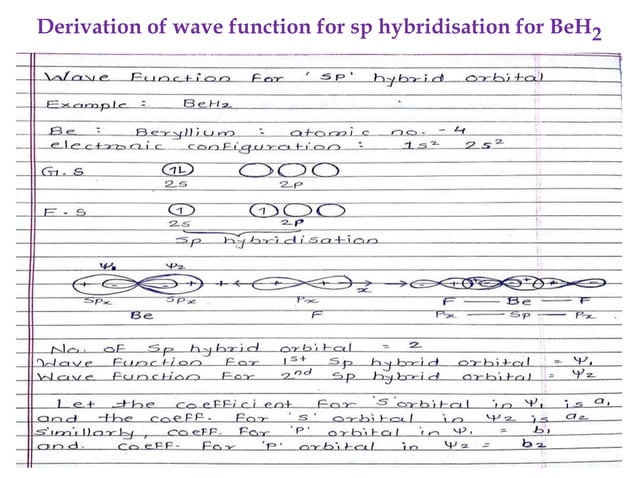 Derivation of wave function for sp hybridisation for BeH2
Wave Function For 'SP' hybrid orbital
Example : BeH2
Be : Beryllium : atomic no. - 4
electronic configuration : 1s² 2s²
G.S 1L
2s 2p
E.S 1 1
2s 2p
sp hybridisation
ψ1 ψ2
+ - - + + + - + x
SPx SPx Px F — Be — F
Be F Px — SP — Px
No. of Sp hybrid orbital = 2
Wave Function For 1st Sp hybrid orbital = ψ1
Wave Function For 2nd Sp hybrid orbital = ψ2
Let the coefficient For 's' orbital in ψ1 is a1
and the coeff. For 's' orbital in ψ2 is a2
Simillarly, coeff. For 'P' orbital in ψ1 = b1
and. coeff. For 'P' orbital in ψ2 = b2